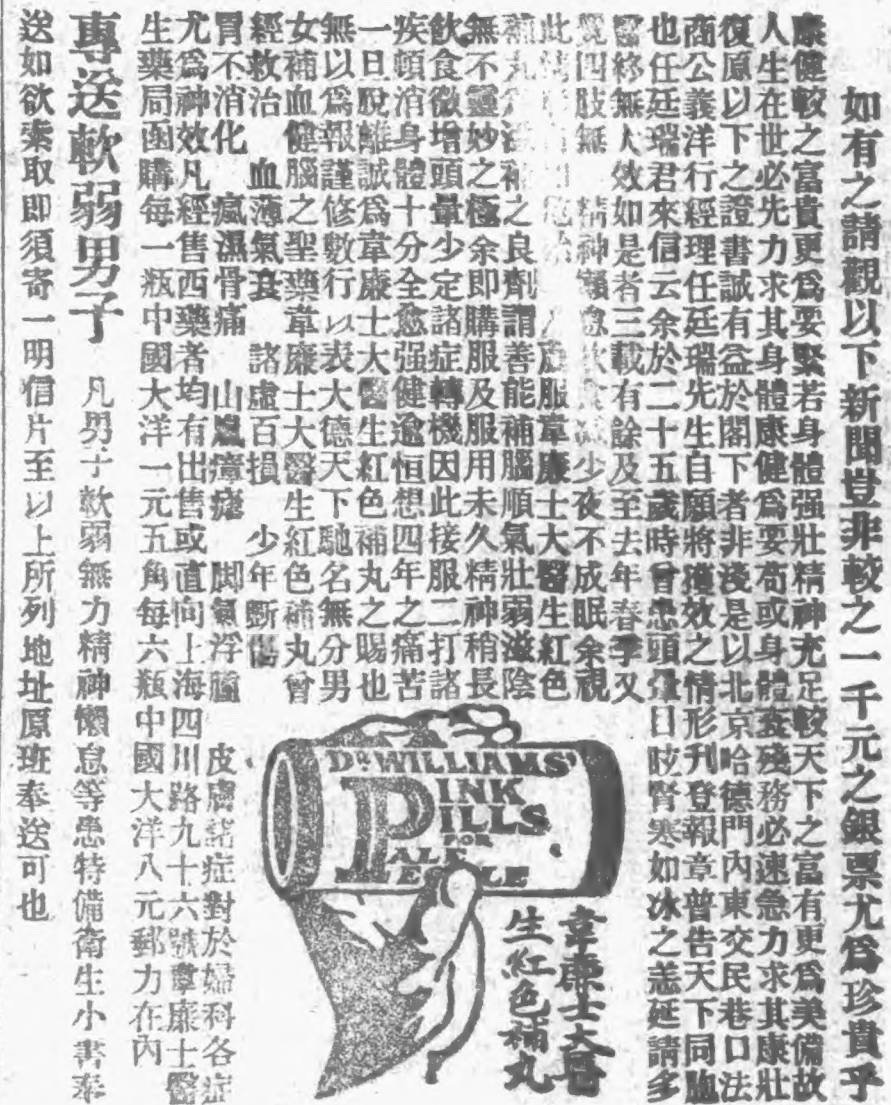 如有之請觀以下新聞豈非較之一千元之銀票尤為珍貴乎
康健較之富貴更為要緊若身體强壯精神充足較天下之富有更為美備故
人生在世必先力求其身體康健為要苟或身體衰殘務必速急力求其康壯
復原以下之證書誠有益於閣下者非淺是以北京哈德門內東交民巷口法
商公義洋行經理任廷瑞先生自願將獲效之情形刋登報章普告天下同胞
也任廷瑞君來信云余於二十五歲時曾患頭暈目眩腎寒如冰之恙延請多
醫終無大效如是者三載有餘及至去年春季又
覺四肢無 精神懶怠飲食減少夜不成眠余視
此 服韋廉士大醫生紅色
補丸 滋補之良劑謂善能補腦順氣壯弱滋陰
無不靈妙之極余即購服及服用未久精神稍長
飲食微增頭暈少定諸症轉機因此接服二打諸
疾頓消身體十分全愈强健逾恒想四年之痛苦
一旦脫離誠為韋廉士大醫生紅色補丸之賜也
無以為報謹修數行以表大德天下馳名無分男
女補血健腦之聖藥韋廉士大醫生紅色補丸曾
經救治 血薄氣衰 諸虛百損 少年斷傷
胃不消化 瘋濕骨痛 山嵐瘴瘧 脚氣浮腫 皮膚諸症對於婦科各症
尤為神效凡經售西藥者均有出售或直向上海四川路九十六號韋廉士醫
生藥局函購每一瓶中國大洋一元五角每六瓶中國大洋八元郵力在內
專送軟弱男子 凡男子軟弱無力精神懶怠等患特備衛生小書奉
送如欲索取即須寄一明信片至以上所列地址原班奉送可也
DR WILLIAMS'
PINK
PILLS
FOR
PALE
PEOPLE
韋廉士大醫
生紅色補丸